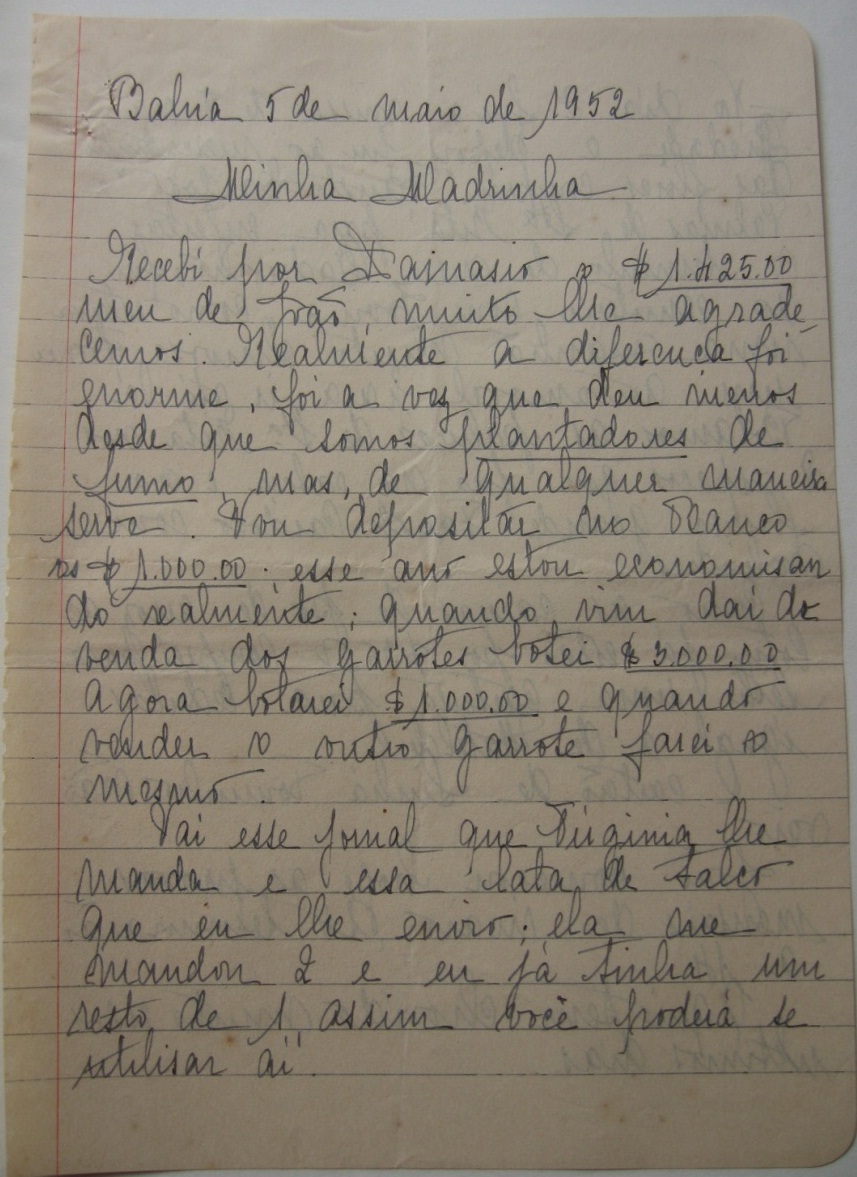 Bahia 5 de maio de 1952
Minha Madrinha
Recebi por Damasio o $ 1.425.00
meu de João, muito lhe agrade-
cemos. Realmente a diferença foi
enorme, foi a vez que deu menos
desde que somos plantadores de
fumo, mas, de qualquer maneira
serve. Vou depositar no Banco
os $ 1.000.00; esse ano estou economisan
do realmente; quando vim dai da
venda dos garrotes botei $ 3.000.00
agora botarei $ 1.000.00 e quando
vender o outro garrote farei o
mesmo.
Vai esse jornal que Virginia lhe
manda e essa lata de talco
que eu lhe envio; ela me
mandou 2 e eu já tinha um
resto de 1, assim você poderá se
utilisar aí.